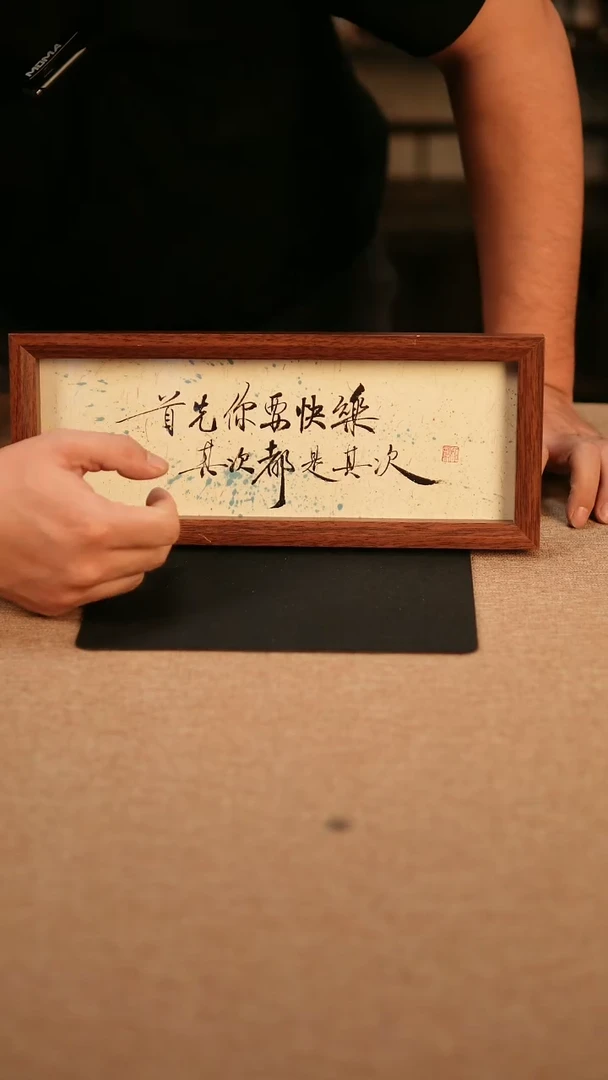 MOMA
首先你要快樂
其次都是其次